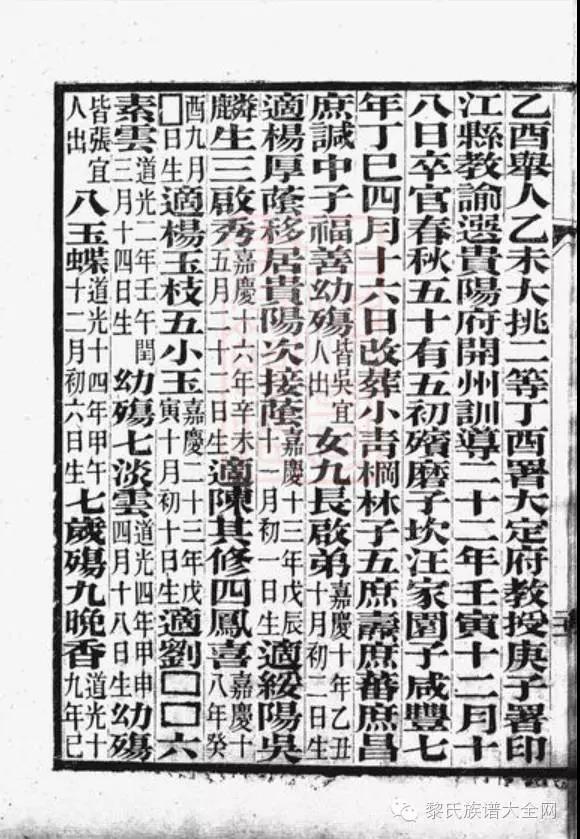 乙酉舉人乙未大挑二等丁酉署大定府教授庚子署印
江縣教諭選貴陽府開州訓導二十二年壬寅十二月十
八日卒官春秋五十有五初殯磨子坎汪家園子咸豐七
年丁巳四月十六日改葬小青棡林子五庶壽庶蕃庶昌
庶諴中子福善幼殤皆吳宜人出女九長啟弟嘉慶十年乙丑十月初二日生
適楊厚蔭移居貴陽次接蔭嘉慶十三年戊辰十一月初一日生適綏陽吳
麟生三啟秀嘉慶十六年辛未五月二十二日生適陳其修四鳳喜嘉慶十八年癸
酉九月□日生適楊玉枝五小玉嘉慶二十三年戊寅十月初十日生適劉□□六
素雲道光二年壬午閏三月十四日生幼殤七淡雲道光四年甲申四月十八日生幼殤
皆張宜人出八玉蝶道光十四年甲午十二月初六日生七歲殤九晚香道光十九年己
黎氏族谱大全网